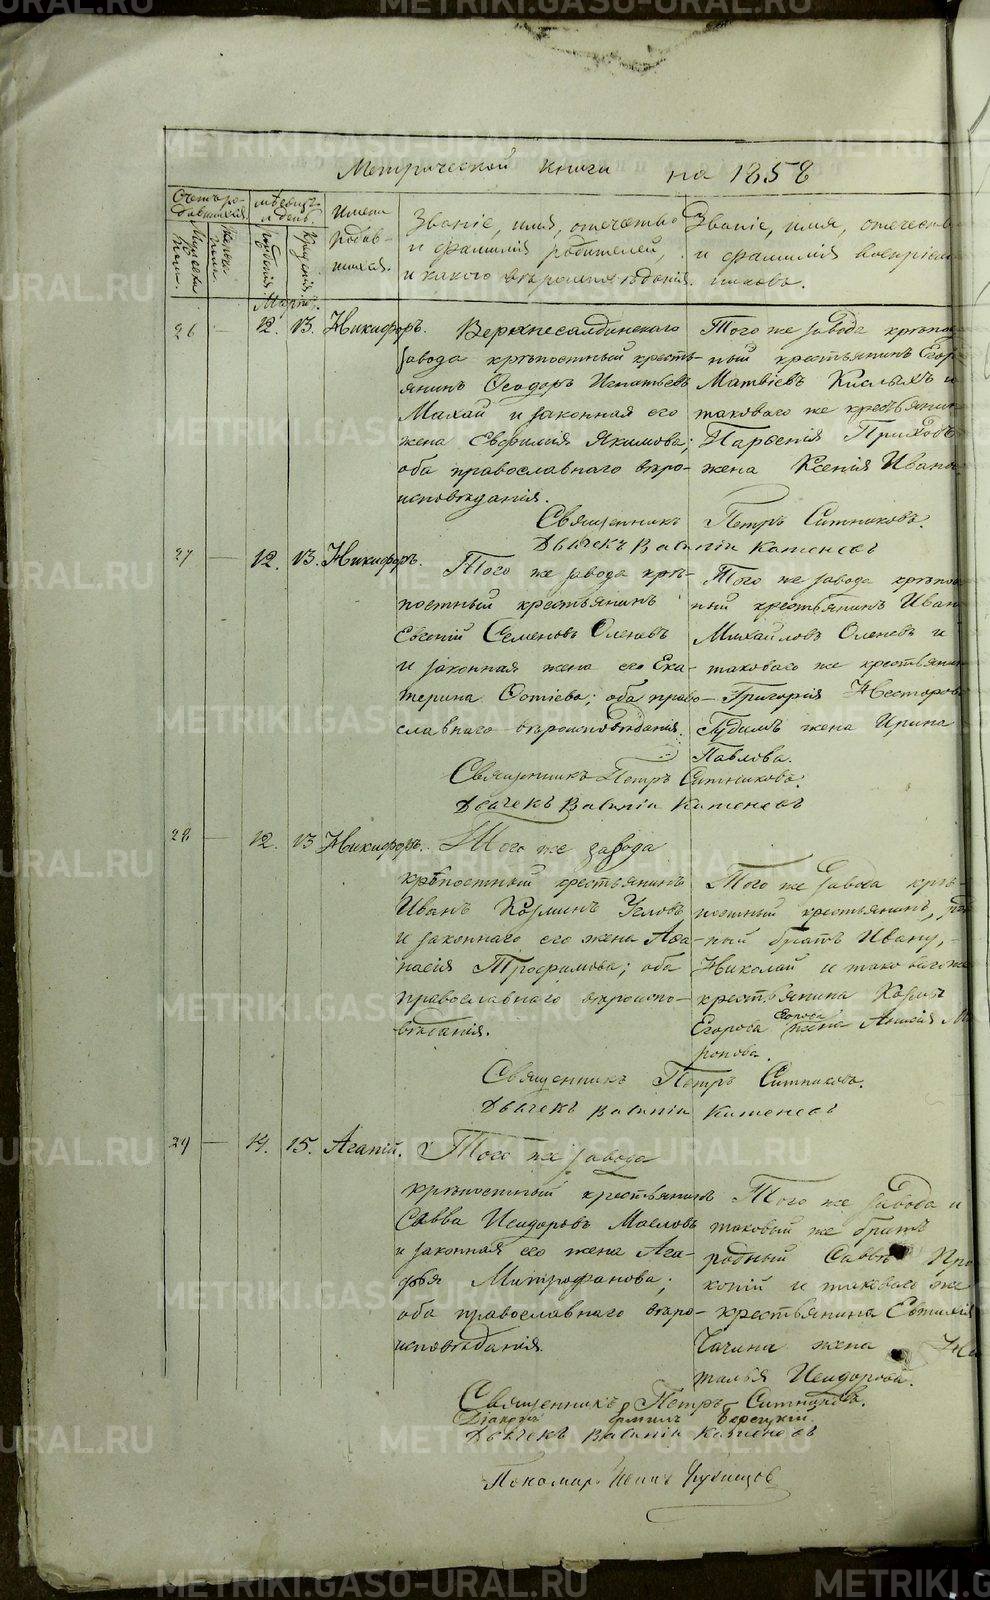 Метрической книги на 1858
Счетъ ро-
дившихся.
Мѣсяцъ
и день.
Имена
родив-
шихся.
Званіе, имя, отечество
и фамилія родителей,
и какого вѣроисповѣданія.
Званіе, имя, отечеств
и фамилія воспріем
никовъ.
Мужеска
пола.
рожденія
Крещенія
Мартъ.
26 12. 13. Никифоръ.
Верхнесалдинскаго
завода крѣпостный кресть-
янинъ Ѳеодоръ Игнатьевъ
Махай и законная его
жена Евфимія Якимова;
оба православнаго вѣро-
исповѣданія.
Того же завода крѣпос
ный крестьянинъ Егор
Матвіевъ Кислыхъ и
таковаго же крестьянин
Парѳенія
жена Ксенія Иванов
Священникъ Петръ Ситниковъ.
Дьячекъ Каменсов
27 12. 13. Никифоръ.
Того же завода крѣ-
постный крестьянинъ
Евгеній Семеновъ Оленевъ
и законная жена его Ека-
терина Ѳотіева; оба право-
славнаго вѣроисповѣданія.
Того же завода крѣпос
ный крестьянинъ Иван
Михайловъ Оленевъ и
таковаго же крестьянин
Григорія Несторов
жена Ирина
Павлова.
Священникъ Петръ Ситниковъ.
Дьячекъ Каменсов
28 12. 13 Никифоръ.
Того же завода
крѣпостный крестьянинъ
Иванъ Козминъ
и законнаго его жена Аѳа-
насія Трофимова; оба
православнаго вѣроиспо-
вѣданія.
Того же завода крѣ-
постный крестьянинъ, род
ный братъ Ивану,
Николай и таковагоже
крестьянина
Егорова жена
ронова.
Священникъ Петръ Ситниковъ.
Дьячекъ Каменсов
29 14. 15. Агапій.
Того же завода
крѣпостный крестьянинъ
Савва Исидоровъ Масловъ
и законная его жена Ага-
фья Митрофанова;
оба православнаго вѣро-
исповѣданія.
Того же завода и
таковый же братъ
родный Саввѣ Про
копій и таковаго же
крестьянина
жена На
талья Исидорова.
Священникъ Петръ Ситниковъ.
Діаконъ
Дьячекъ Каменсов
Пономарь
METRIKI.GASO-URAL.RU